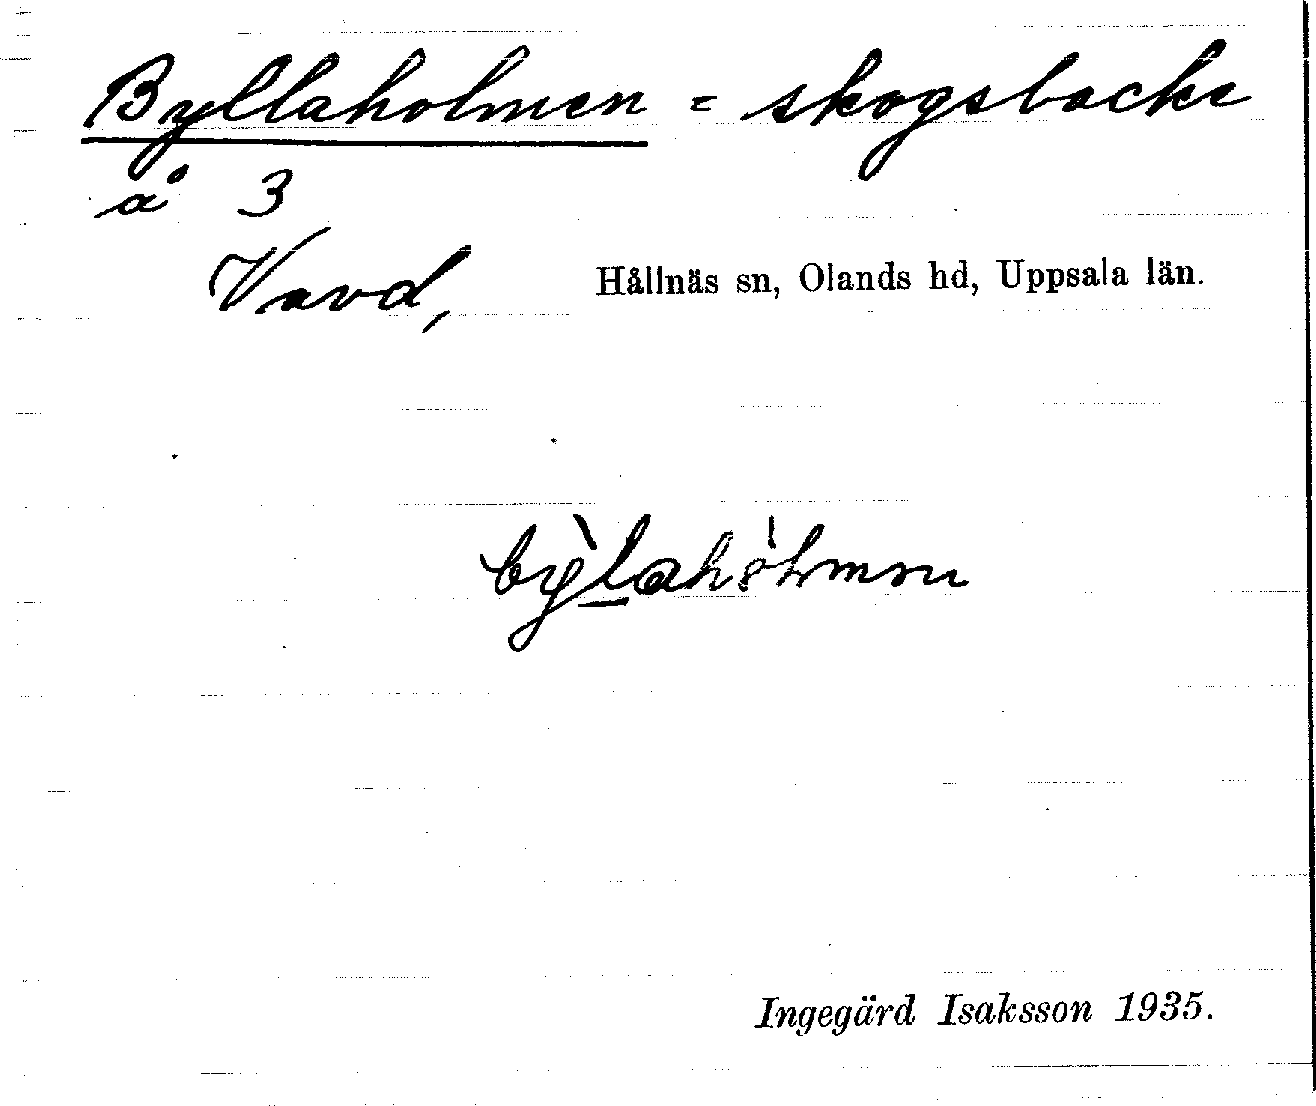 Byllaholmen = skogsbacke
å 3
Vavd, Hållnäs sn, Olands hd, Uppsala län.
Ingegärd Isaksson 1935.